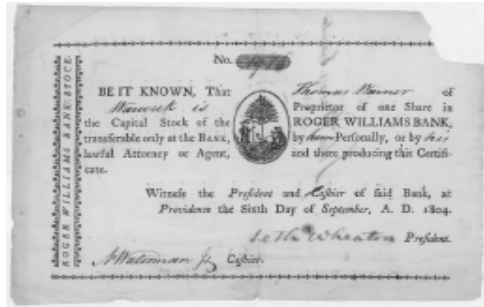 ROGER WILLIAMS BANK STOCK.
No.
BE IT KNOWN, That Thomas Warner of
Warwick is Proprietor of one Share in
the Capital Stock of the ROGER WILLIAMS BANK,
transferable only at the BANK, by him Personally, or by his
lawful Attorney or Agent, and there producing this Certifi-
cate.
Witness the President and Cashier of said Bank, at
Providence the Sixth Day of September, A. D. 1804.
Seth Wheaton President.
Waterman Jr Cashier.